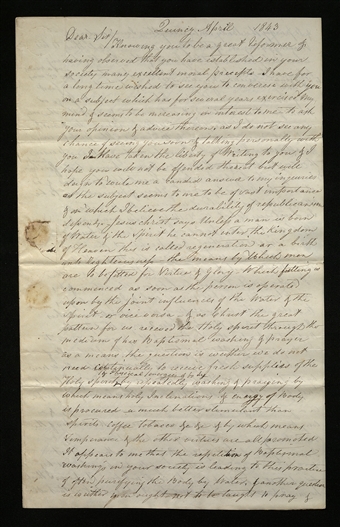 Quincy April 1843
Dear Sir/
Knowing you to be a great Reformer &
having observed that you have established in your
society many excellent moral precepts I have for
a long time wished to see you to converse with you
on a subject which has for several years exercised my
mind & seems to be increasing in interest to me to ask
your opinion & advice thereon as I do not see any
chance of seeing you soon & talking personally with
you I have taken the liberty of Writing to you & I
hope you will not be offended therein but will
deign to write me a candid answer to my inquiries
as the subject seems to me to be of vast importance
& on which I believe the durability of republicanism
depends, Jesus christ says Unless a man is born
of Water & the Spirit he cannot enter the Kingdom
of Heaven this is called regeneration or a birth
into righteousness the means by which man
are to be fitted for Virtue & Glory Which fitting is
commenced as soon as the person is operated
upon by the joint influences of the Water & the
Spirit or vice versa & as christ the great
pattern for us received the Holy Spirit through the
medium of his Baptismal Washing & prayer
as a means the question is whether we do not
need continually to receive fresh supplies of the
Holy Spirit by repeatedly washing & praying by
which means holy Inclinations & energy of Body
is procured a much better stimulant than
Spirits Coffee Tobacco &c &c & by which means
Temperance & the other virtues are all promoted
It appears to me that the repetition of Baptismal
washings in your society is leading to this practice
of often purifying the Body by Water & another question
is whether you ought not to be taught to pray &